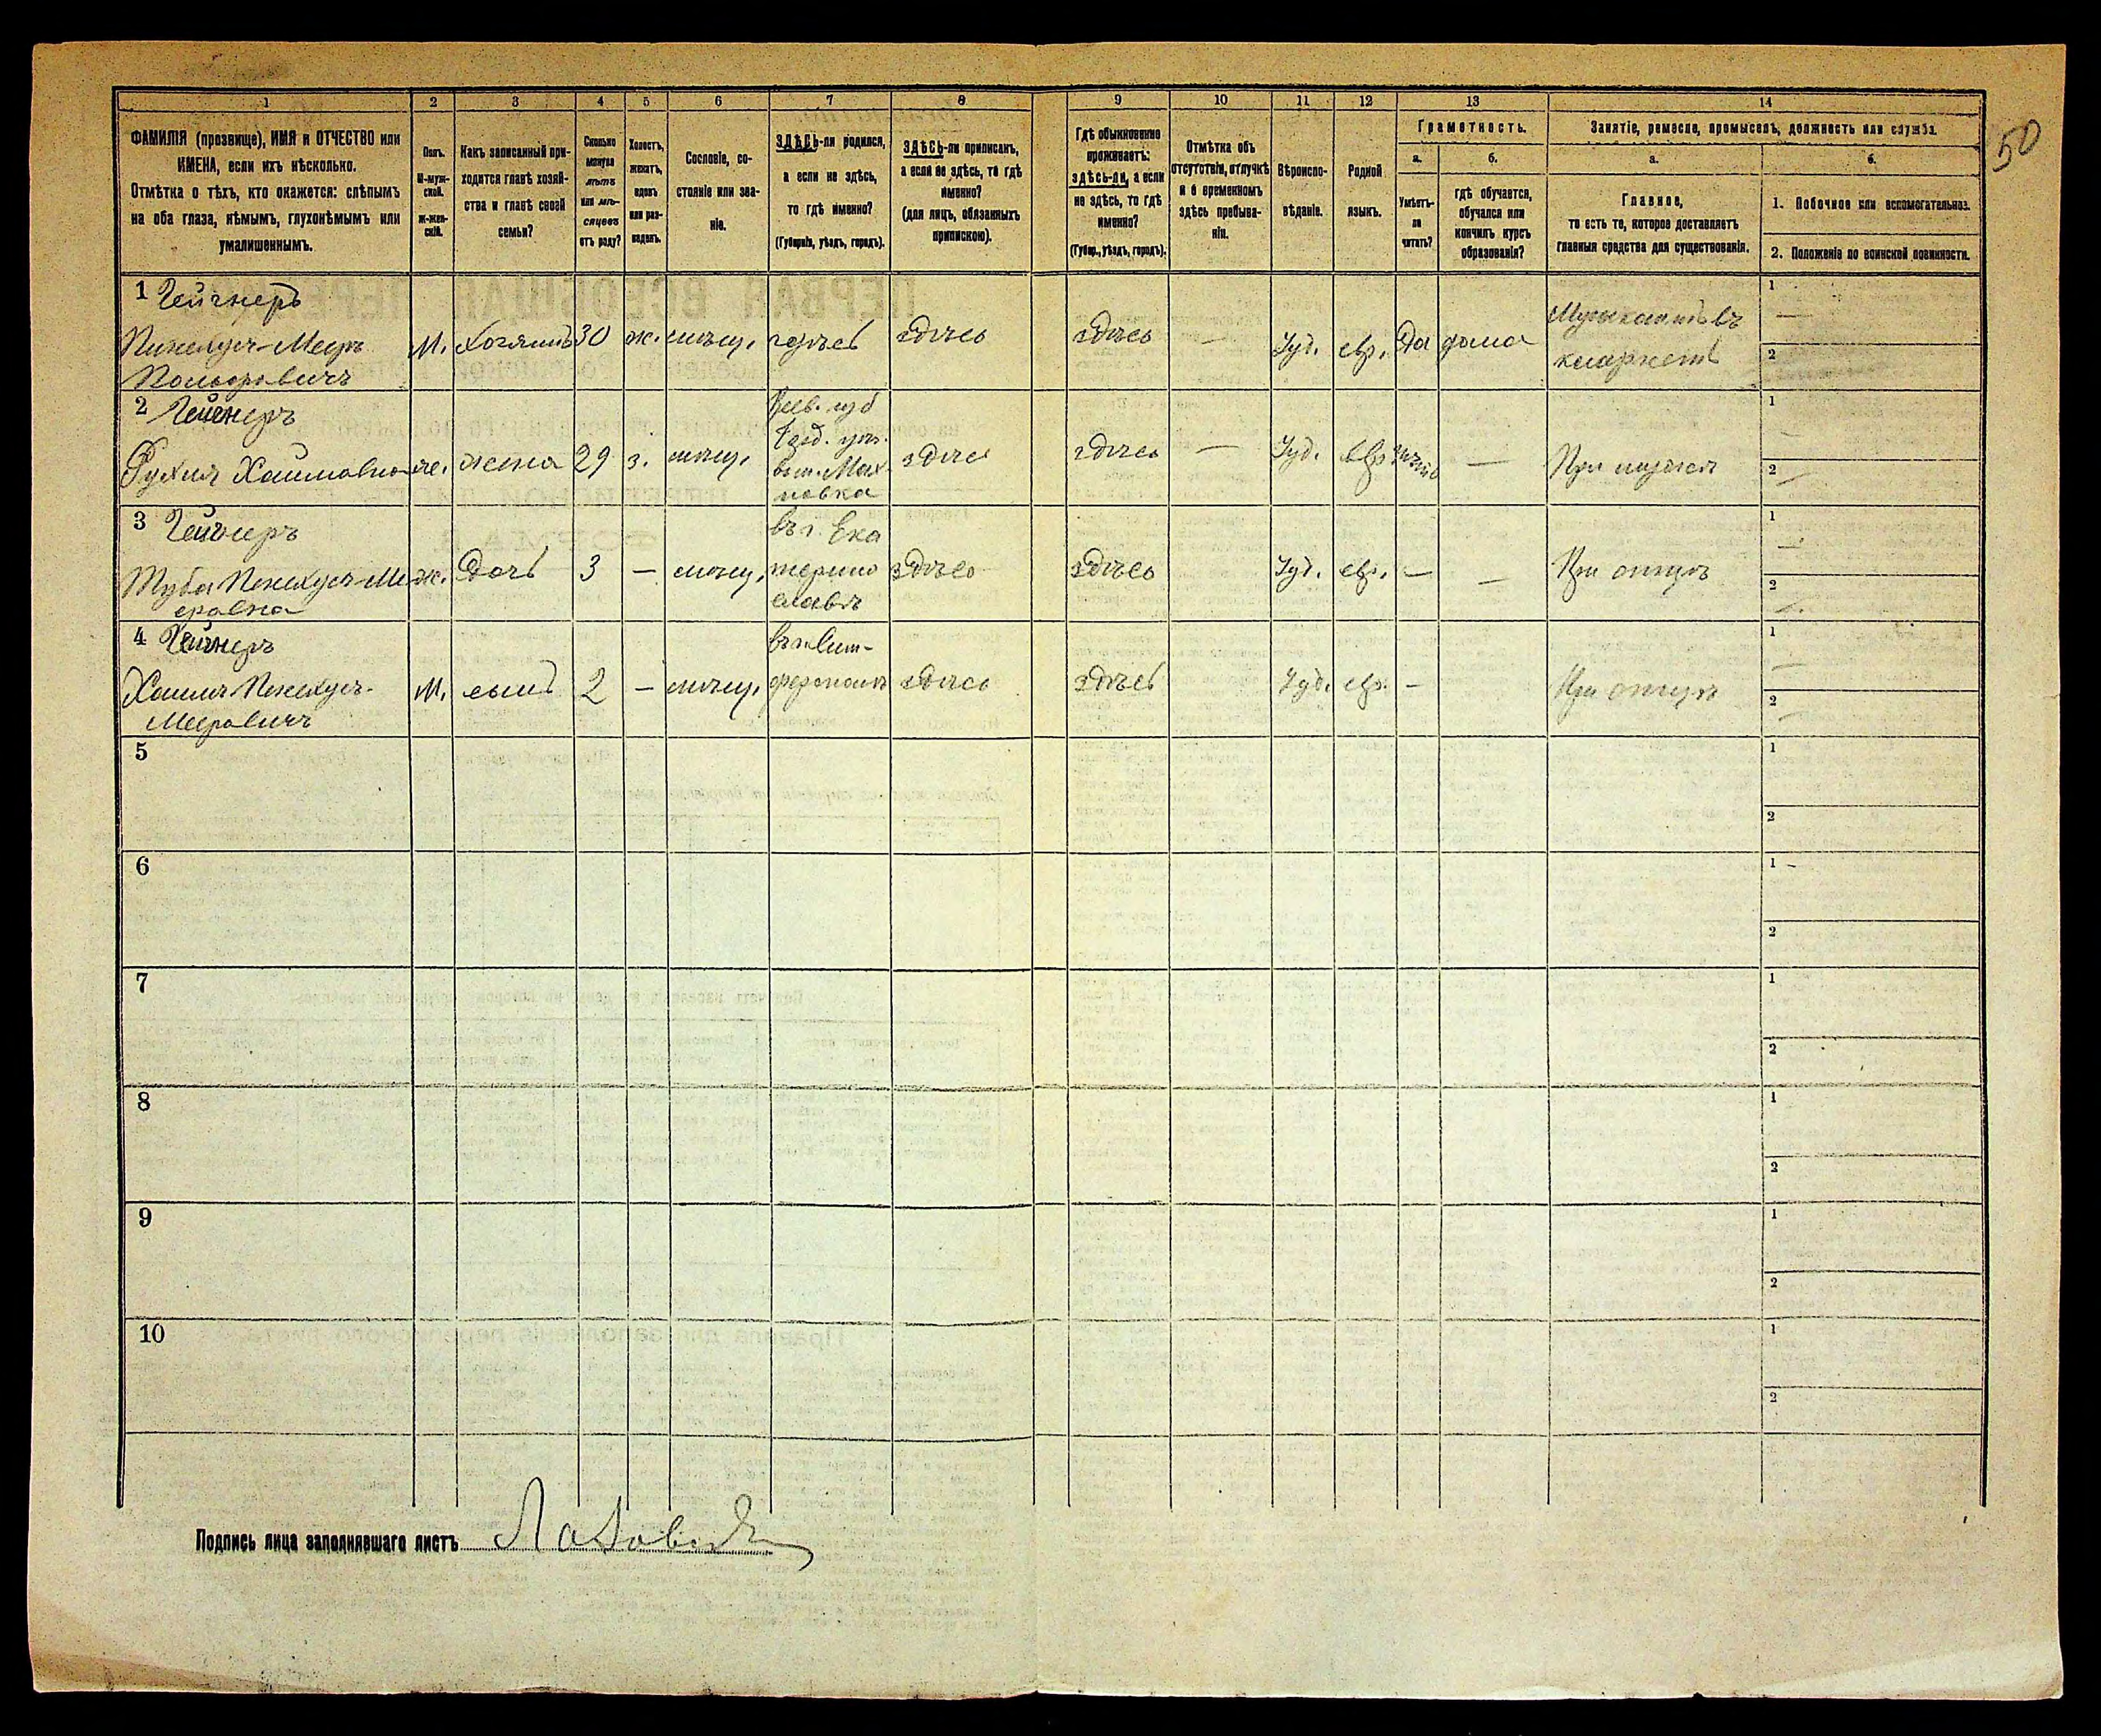 1 2 3 4 5 6 7 8 9 10 11 12 13 14
50
ФАМИЛІЯ (прозвище), ИМЯ и ОТЧЕСТВО или
ИМЕНА, если ихъ нѣсколько.
Отмѣтка о тѣхъ, кто окажется: слѣпымъ
на оба глаза, нѣмымъ, глухонѣмымъ или
умалишеннымъ.
Полъ.
М-муж-
ской.
Ж-жен-
скій.
Какъ записанный при-
ходится главѣ хозяй-
ства и главѣ своей
семьи?
Сколько
минуло
лѣтъ
или мѣ-
сяцевъ
отъ роду?
Холостъ,
женатъ,
вдовъ
или раз-
веденъ.
Сословіе, со-
стояніе или зва-
ніе.
ЗДѢСЬ-ли родился,
а если не здѣсь,
то гдѣ именно?
(Губернія, уѣздъ, городъ).
ЗДѢСЬ-ли приписанъ,
а если не здѣсь, то гдѣ
именно?
(для лицъ, обязанныхъ
припискою).
Гдѣ обыкновенно
проживаетъ:
здѣсь-ли, а если
не здѣсь, то гдѣ
именно?
(Губер., уѣздъ, городъ).
Отмѣтка объ
отсутствіи, отлучкѣ
и о временномъ
здѣсь пребыва-
ніи.
Вѣроиспо-
вѣданіе.
Родной
языкъ.
Грамотность.
а.
Умѣетъ-
ли
читать?
б.
гдѣ обучается,
обучался или
кончилъ курсъ
образованія?
Занятіе, ремесло, промыселъ, должность или служба.
а.
Главное,
то есть то, которое доставляетъ
главныя средства для существованія.
б.
1. Побочное или вспомогательное.
2. Положеніе по воинской повинности.
1 Гейгнеръ
Пинехусъ-Мееръ
М. хозяинъ 30 ж. мѣщ. здѣсь здѣсь здѣсь — Іуд. евр. да дома
Музыкантъ въ
1 —
2
2 Гейгнеръ
Рухля Хаимовна ж. жена 29 з. мѣщ.
Кіев. губ
здѣсь здѣсь — Іуд. евр. —
При мужѣ
1 —
2 —
3 Гейгнеръ
Туба Пинехусъ-Ме
еровна
ж. дочь 3 — мѣщ.
въ г. Ека
терино
славѣ
здѣсь здѣсь Іуд. евр. — —
При отцѣ
1 —
2 —
4 Гейгнеръ
Хаимъ Пинехусъ-
Мееровичъ
М. сынъ 2 — мѣщ.
въ г. Сим-
ферополѣ
здѣсь здѣсь Іуд. евр. —
При отцѣ
1 —
2 —
5
1
2
6
1 –
2
7
1
2
8
1
2
9
1
2
10
1
2
Подпись лица заполнявшаго листъ